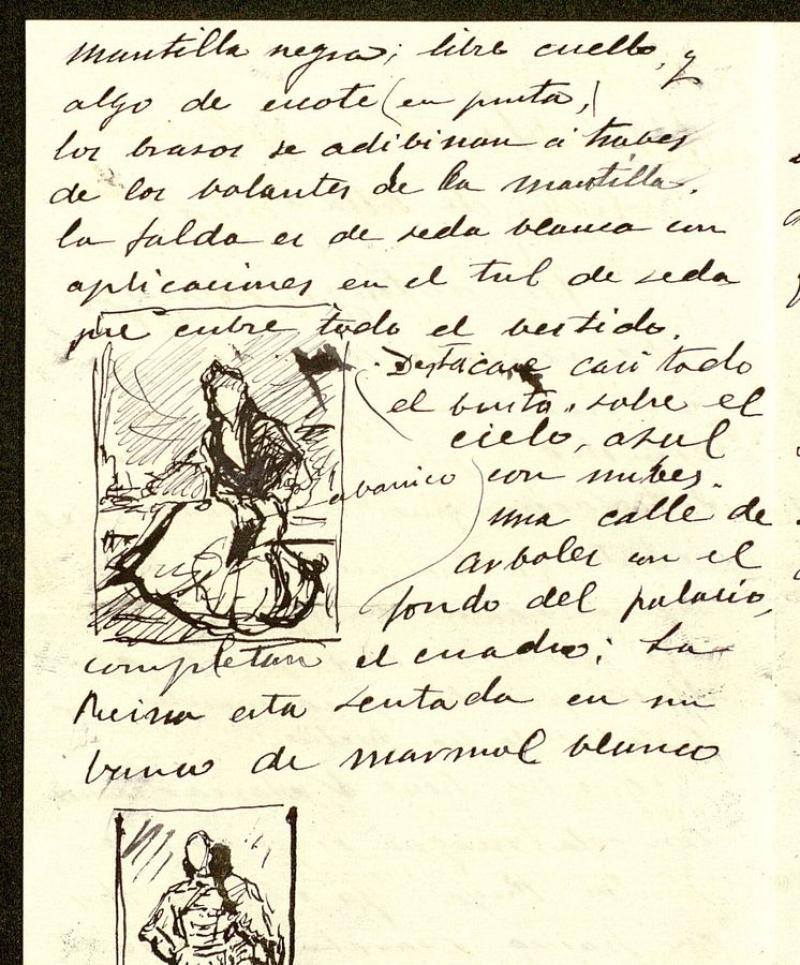 mantilla negra; libre cuello, y
algo de escote (en punta,)
los brasos se adibinan a trabes
de los bolantes de la mantilla.
la falda es de seda blanca con
aplicaciones en el tul de seda
que cubre todo el bestido.
Destacase casi todo
el busto, sobre el
cielo, asul
abanico
con nubes.
una calle de
arboles con el
fondo del palacio,
completan el cuadro; La
Reina esta sentada en un
banco de marmol blanco